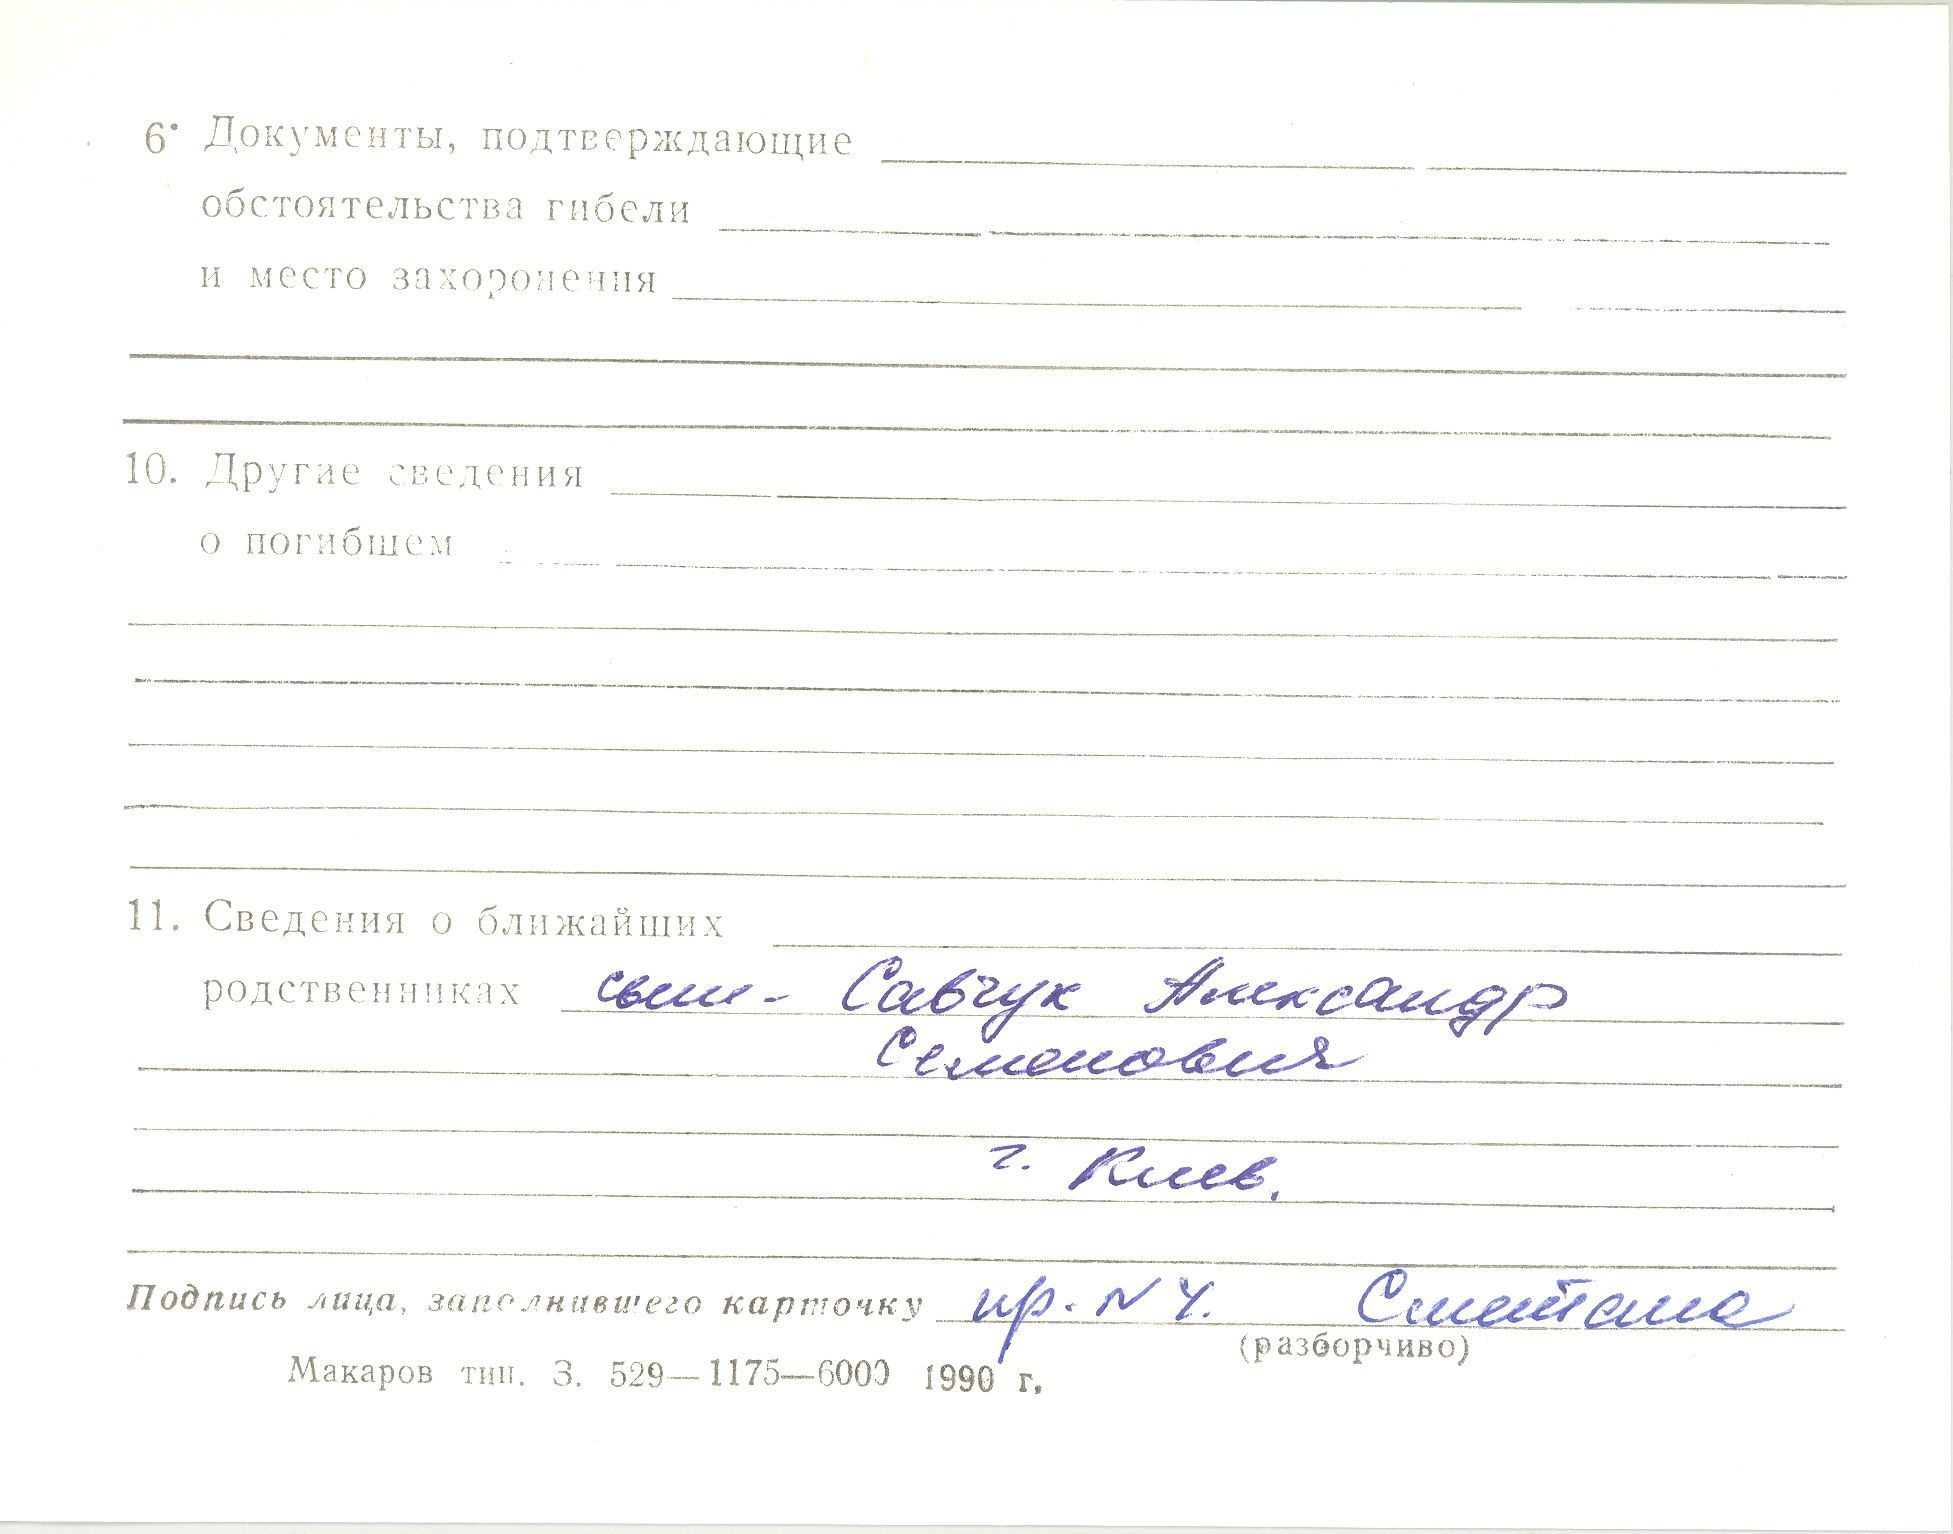 6. Документы, подтверждающие
обстоятельства гибели
и место захоронения
10. Другие сведения
о погибшем
11. Сведения о ближайших
родственниках сын - Савчук Александр
Семенович
г. Киев.
Подпись лица, заполнившего карточку пр. N 4. Сметана
(разборчиво)
Макаров тип. З. 529—1175—6000 1990 г.